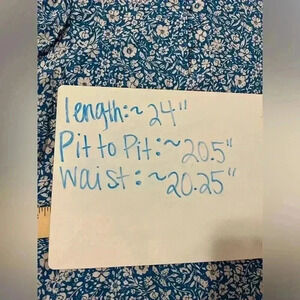 length:~24"
Pit to Pit:~20.5"
Waist:~20.25"